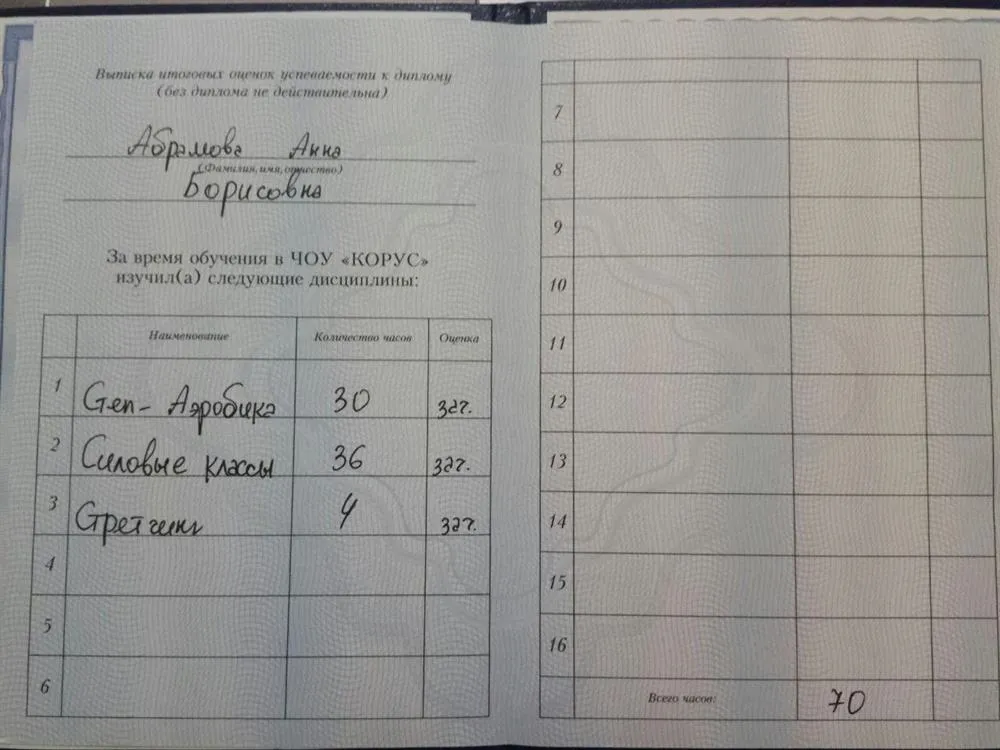 Выписка итоговых оценок успеваемости к диплому
(без диплома не действительна)
Абрамова Анна
(Фамилия, имя, отчество)
Борисовна
За время обучения в ЧОУ «КОРУС»
изучил(а) следующие дисциплины:
Наименование Количество часов Оценка
1 Степ-Аэробика 30 зач.
2 Силовые классы 36 зач.
3 Стретчинг 4 зач.
4
5
6
7
8
9
10
11
12
13
14
15
16
Всего часов: 70